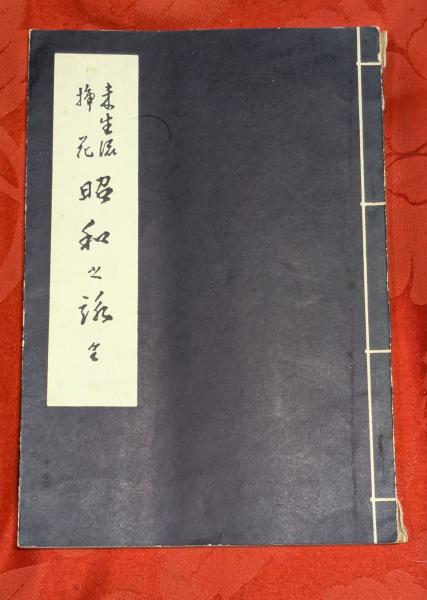 未生流
挿花
昭和之詠 全